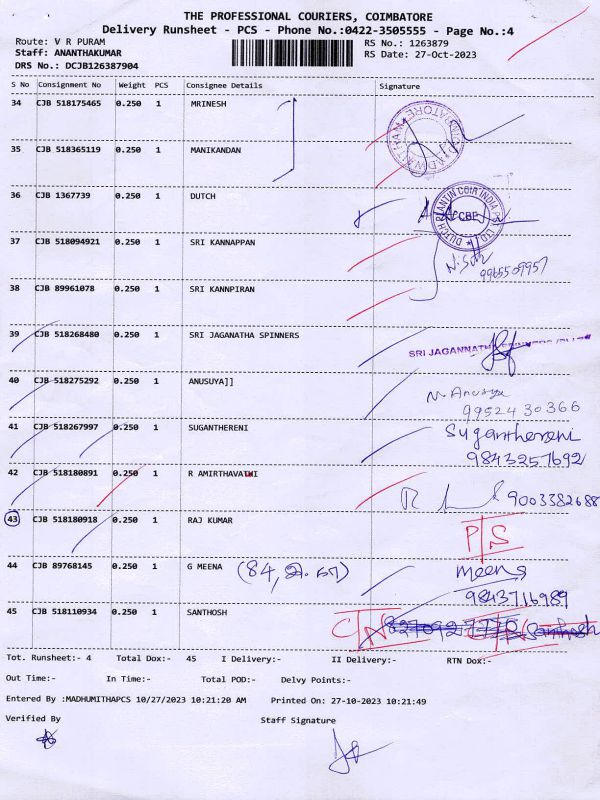 THE PROFESSIONAL COURIERS, COIMBATORE
Delivery Runsheet - PCS - Phone No.:0422-3505555 - Page No.:4
Route: V R PURAM
RS No.: 1263879
Staff: ANANTHAKUMAR
RS Date: 27-Oct-2023
DRS No.: DCJB126387904
S No Consignment No Weight PCS Consignee Details Signature
34 CJB 518175465 0.250 1 MRINESH
35 CJB 518365119 0.250 1 MANIKANDAN
36 CJB 1367739 0.250 1 DUTCH
CBE
37 CJB 518094921 0.250 1 SRI KANNAPPAN
9965509957
38 CJB 89961078 0.250 1 SRI KANNPIRAN
39 CJB 518268480 0.250 1 SRI JAGANATHA SPINNERS
SRI JAGANNATHA SPINNERS
40 CJB 518275292 0.250 1 ANUSUYA]]
9952430366
41 CJB 518267997 0.250 1 SUGANTHERENI Suganthereni
9843257692
42 CJB 518180891 0.250 1 R AMIRTHAVATHI
9003382688
43 CJB 518180918 0.250 1 RAJ KUMAR P/S
44 CJB 89768145 0.250 1 G MEENA Meena
9843716989
45 CJB 518110934 0.250 1 SANTHOSH C/N Santhosh
Tot. Runsheet:- 4 Total Dox:- 45 I Delivery:- II Delivery:- RTN Dox:-
Out Time:- In Time:- Total POD:- Delvy Points:-
Entered By :MADHUMITHAPCS 10/27/2023 10:21:20 AM Printed On: 27-10-2023 10:21:49
Verified By Staff Signature